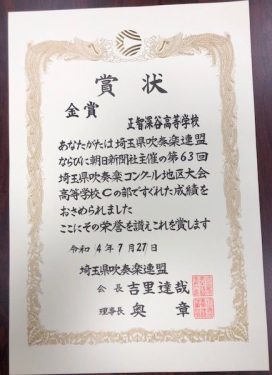 賞状
金賞
正智深谷高等学校
あなたがたは埼玉県吹奏楽連盟
ならびに朝日新聞社主催の第63回
埼玉県吹奏楽コンクール地区大会
高等学校Cの部ですぐれた成績を
おさめられました
ここにその栄誉を讃えこれを賞します
令和 4年7月27日
埼玉県吹奏楽連盟
会長 吉里達哉
理事長 奥章